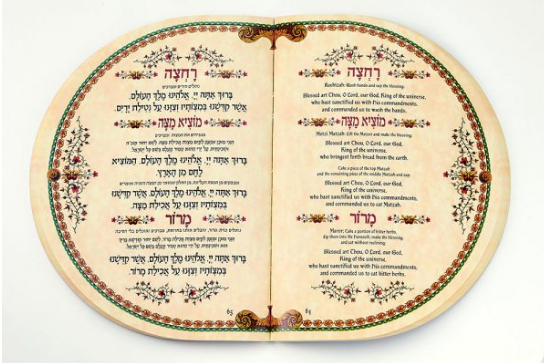 רָחְצָה
בָּרוּךְ אַתָּה יְיָ, אֱלֹהֵינוּ מֶלֶךְ הָעוֹלָם,
אֲשֶׁר קִדְּשָׁנוּ בְּמִצְוֹתָיו וְצִוָּנוּ עַל נְטִילַת יָדַיִם.
מוֹצִיא מַצָּה
בָּרוּךְ אַתָּה יְיָ, אֱלֹהֵינוּ מֶלֶךְ הָעוֹלָם, הַמּוֹצִיא
לֶחֶם מִן הָאָרֶץ.
בָּרוּךְ אַתָּה יְיָ, אֱלֹהֵינוּ מֶלֶךְ הָעוֹלָם, אֲשֶׁר קִדְּשָׁנוּ
בְּמִצְוֹתָיו וְצִוָּנוּ עַל אֲכִילַת מַצָּה.
מָרוֹר
בָּרוּךְ אַתָּה יְיָ, אֱלֹהֵינוּ מֶלֶךְ הָעוֹלָם, אֲשֶׁר קִדְּשָׁנוּ
בְּמִצְוֹתָיו וְצִוָּנוּ עַל אֲכִילַת מָרוֹר.
65
רָחְצָה
Rachtzah: Wash hands and say the blessing.
Blessed art Thou, O Lord, our God, King of the universe,
who hast sanctified us with His commandments,
and commanded us to wash the hands.
מוֹצִיא מַצָּה
Motzi Matzah: Lift the Matzot and make the blessing.
Blessed art Thou, O Lord, our God,
King of the universe,
who bringest forth bread from the earth.
Take a piece of the top Matzah
and the remaining piece of the middle Matzah and say:
Blessed art Thou, O Lord, our God,
King of the universe,
who hast sanctified us with His commandments,
and commanded us to eat Matzah.
מָרוֹר
Maror: Take a portion of bitter herbs,
dip them into the Haroseth, make the blessing,
and eat without reclining.
Blessed art Thou, O Lord, our God,
King of the universe,
who hast sanctified us with His commandments,
and commanded us to eat bitter herbs.